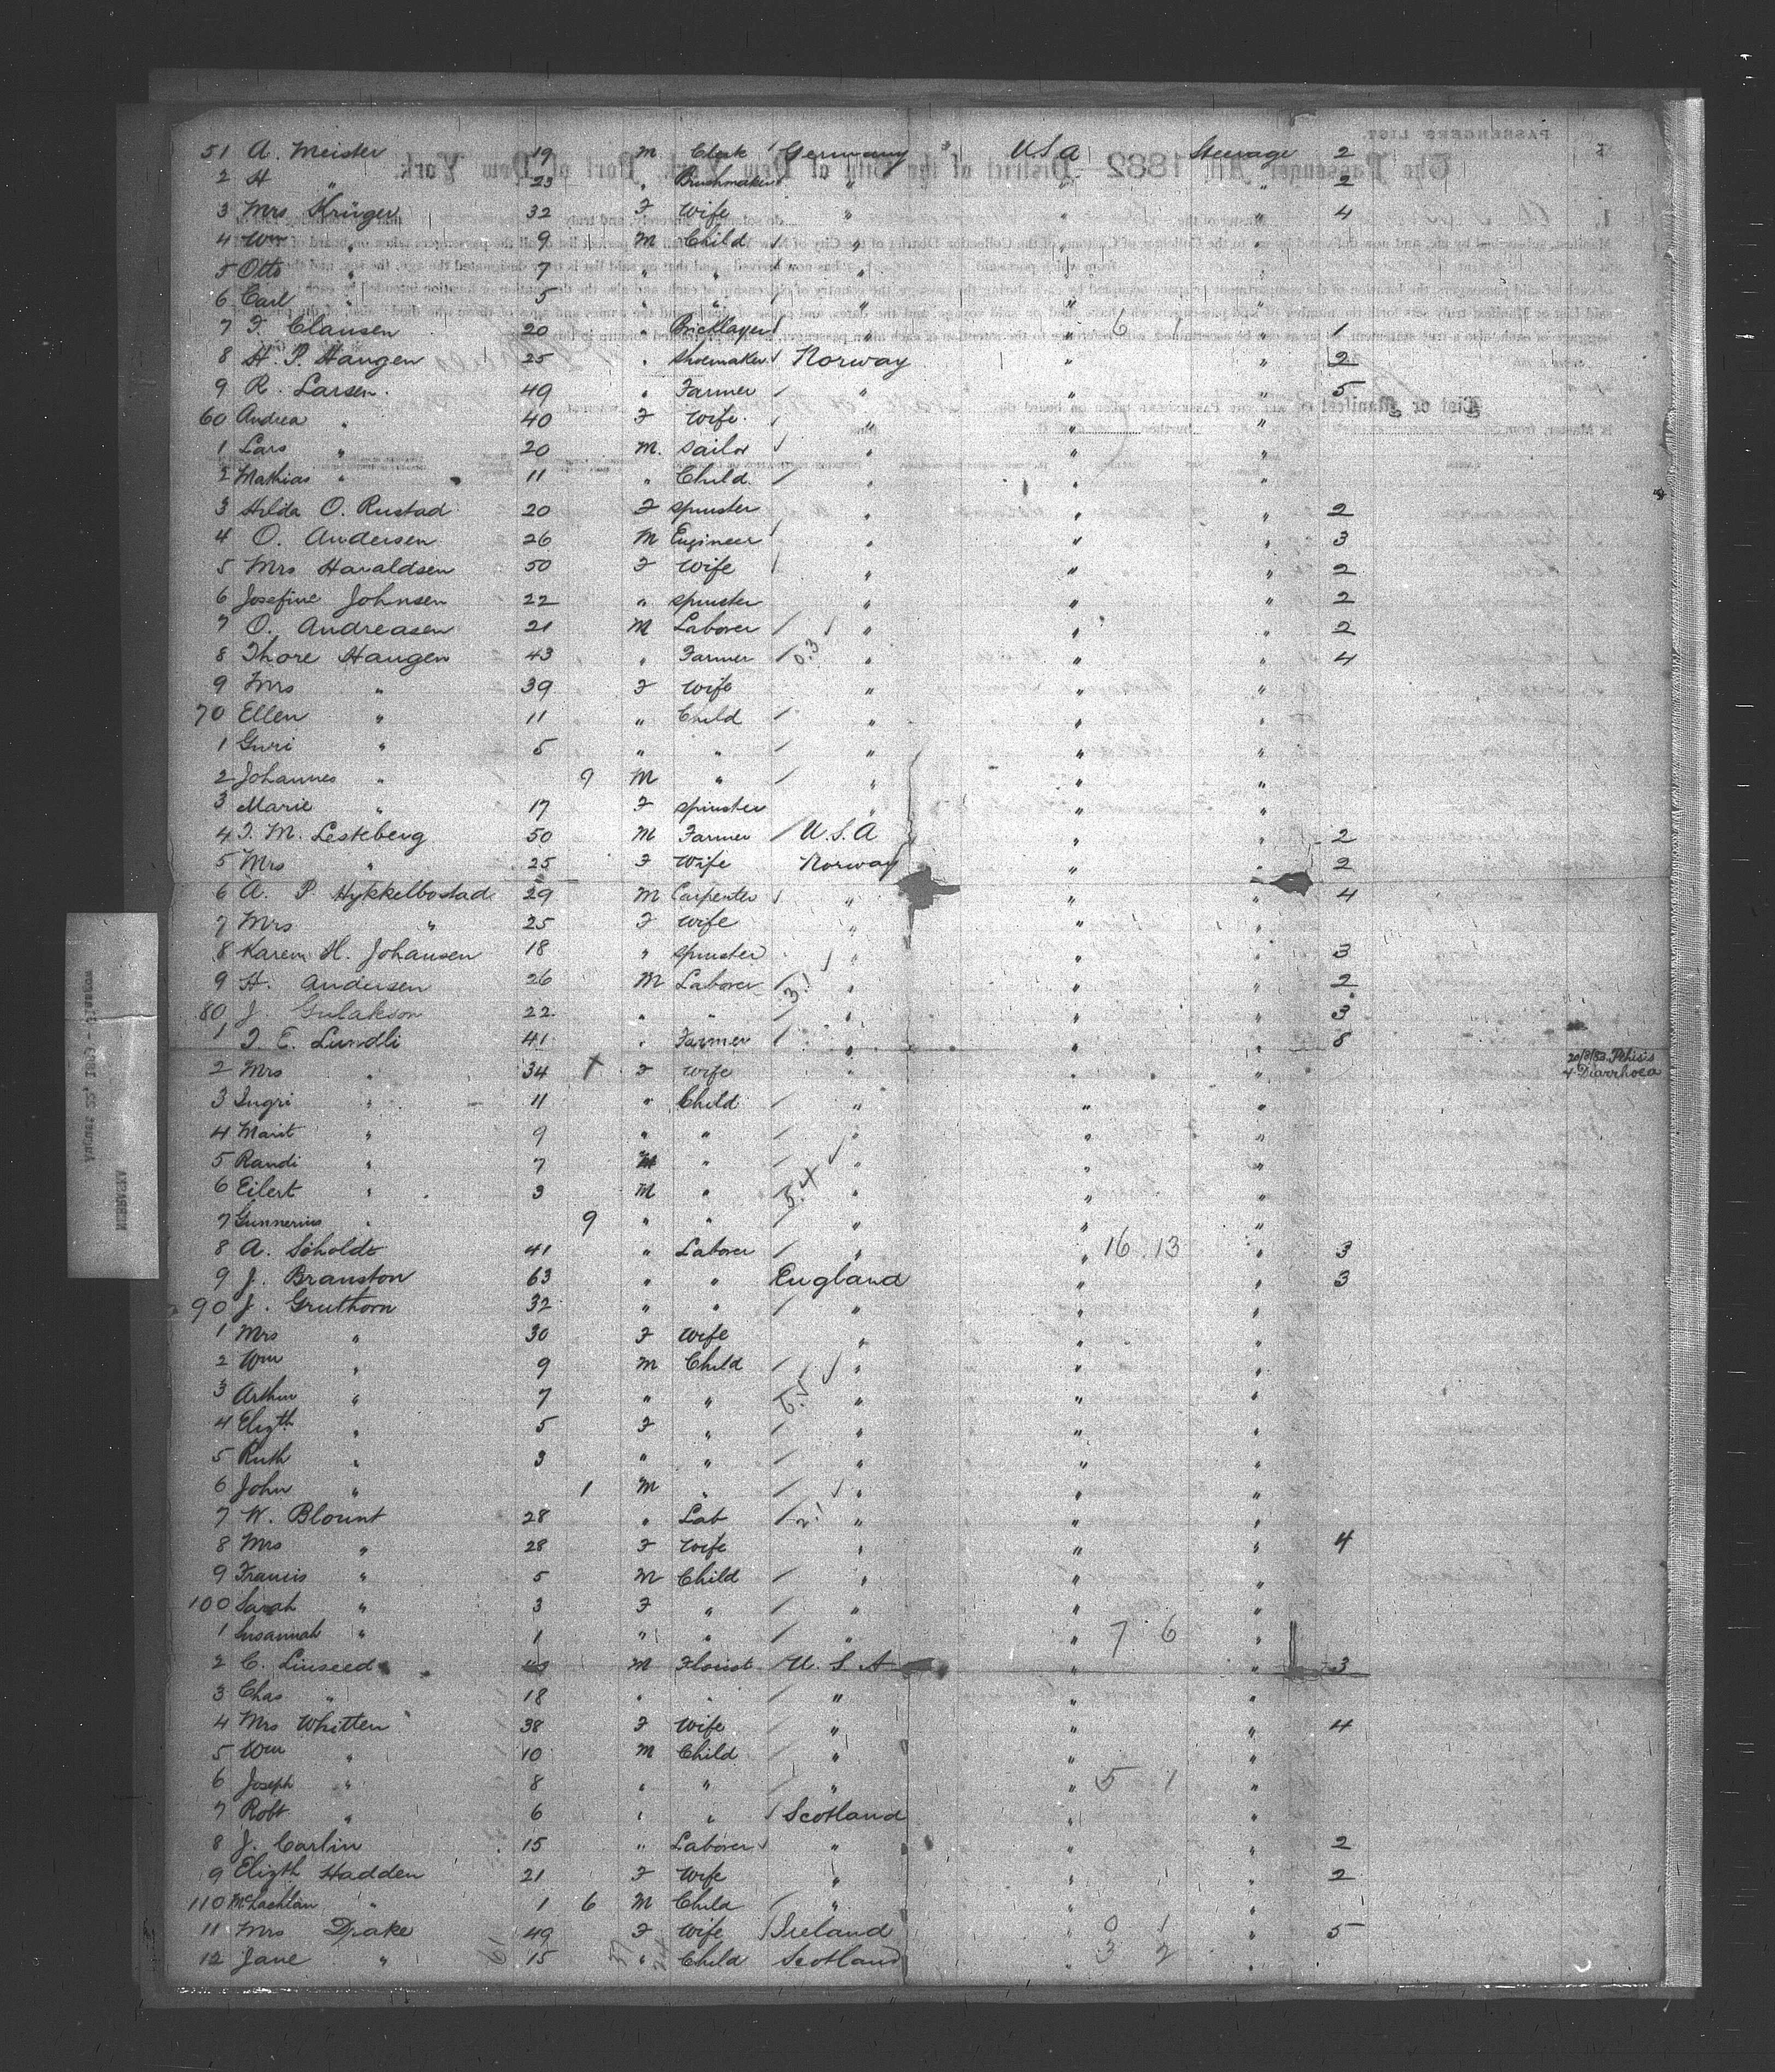 51 A. Meister 19 M Clerk Germany USA Steerage 2
2 H " 23 " Brushmaker " " " 2
3 Mrs Krüger 32 F Wife " " " 4
4 Wm " 9 M Child " " "
5 Otto " 7 " " " " "
6 Carl " 5 " " " " "
7 F. Clausen 20 " Bricklayer " " 6 1 " 1
8 H. P. Haugen 25 " Shoemaker Norway " " 2
9 R. Larsen 49 " Farmer " " " 5
60 Andrea " 40 F Wife " " "
1 Lars " 20 M. Sailor " " "
2 Mathias " 11 " Child " " "
3 Hilda O. Rustad 20 F Spinster " " " 2
4 O. Andersen 26 M Engineer " " " 3
5 Mrs Haraldsen 50 F Wife " " " 2
6 Josefine Johnsen 22 " Spinster " " " 2
7 O. Andreasen 21 M Laborer " " " 2
8 Thore Haugen 43 " Farmer " " " 4
9 Mrs " 39 F Wife " " "
70 Ellen " 11 " Child " " "
1 Guri " 5 " " " " "
2 Johannes " 9 M " " " "
3 Marie " 17 F Spinster " " "
4 T. M. Lesteberg 50 M Farmer U.S.A " " 2
5 Mrs " 25 F Wife Norway " " 2
6 A. P Hykkelbostad 29 M Carpenter " " " 4
7 Mrs " 25 F Wife " " "
8 Karen H. Johansen 18 " Spinster " " " 3
9 H. Andersen 26 M Laborer " " " 2
80 J. Gulakson 22 " " " " " 3
1 T. E. Lundli 41 " Farmer " " " 8
2 Mrs " 34 † F Wife " " " 20/8/82 Pthisis & Diarrhoea
3 Ingri " 11 " Child " " "
4 Marit " 9 " " " " "
5 Randi " 7 " " " "
6 Eilert " 3 M " " " "
7 Gunnerius " 9 " " " " "
8 A. Söholdt 41 " Laborer " " 16 13 " 3
9 J. Branston 63 " " England " " 3
90 J. Gruthorn 32 " " " " "
1 Mrs " 30 F Wife " " "
2 Wm " 9 M Child " " "
3 Arthur " 7 " " " " "
4 Elizth " 5 F " " " "
5 Ruth " 3 " " " " "
6 John " 1 M " " " "
7 W. Blount 28 " Lab " " "
8 Mrs " 28 F Wife " " " 4
9 Francis " 5 M Child " " "
100 Sarah " 3 F " " " "
1 Susannah " 1 " " " " 7 6 "
2 C. Linseed M Florist U.S.A " " 3
3 Chas " 18 " " " " "
4 Mrs Whitten 38 F Wife " " " 4
5 Wm " 10 M Child " " "
6 Joseph " 8 " " " " 5 1 "
7 Robt " 6 " " Scotland " "
8 J. Carlin 15 " Laborer " " " 2
9 Elizth Hadden 21 F Wife " " " 2
110 McLachlan " 1 6 M Child " " "
11 Mrs Drake 49 F Wife Ireland " 0 1 " 5
12 Jane " 15 " Child Scotland " 3 2 "